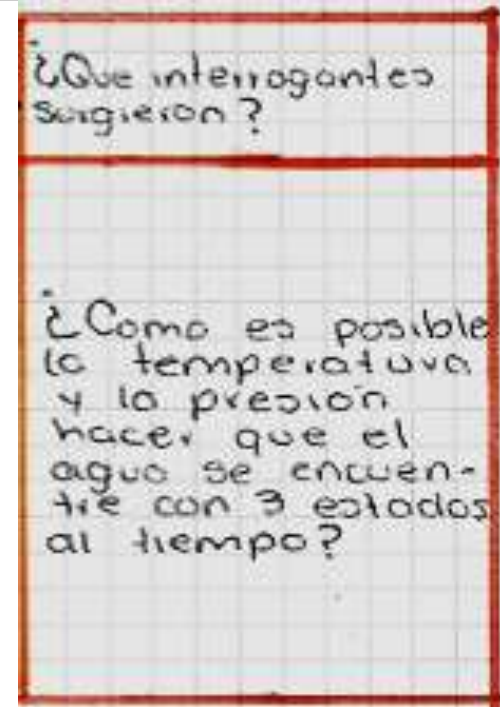 ¿Que interrogantes
surgieron?
¿Como es posible
la temperatura
y la presión
hacer que el
agua se encuen-
tre con 3 estados
al tiempo?